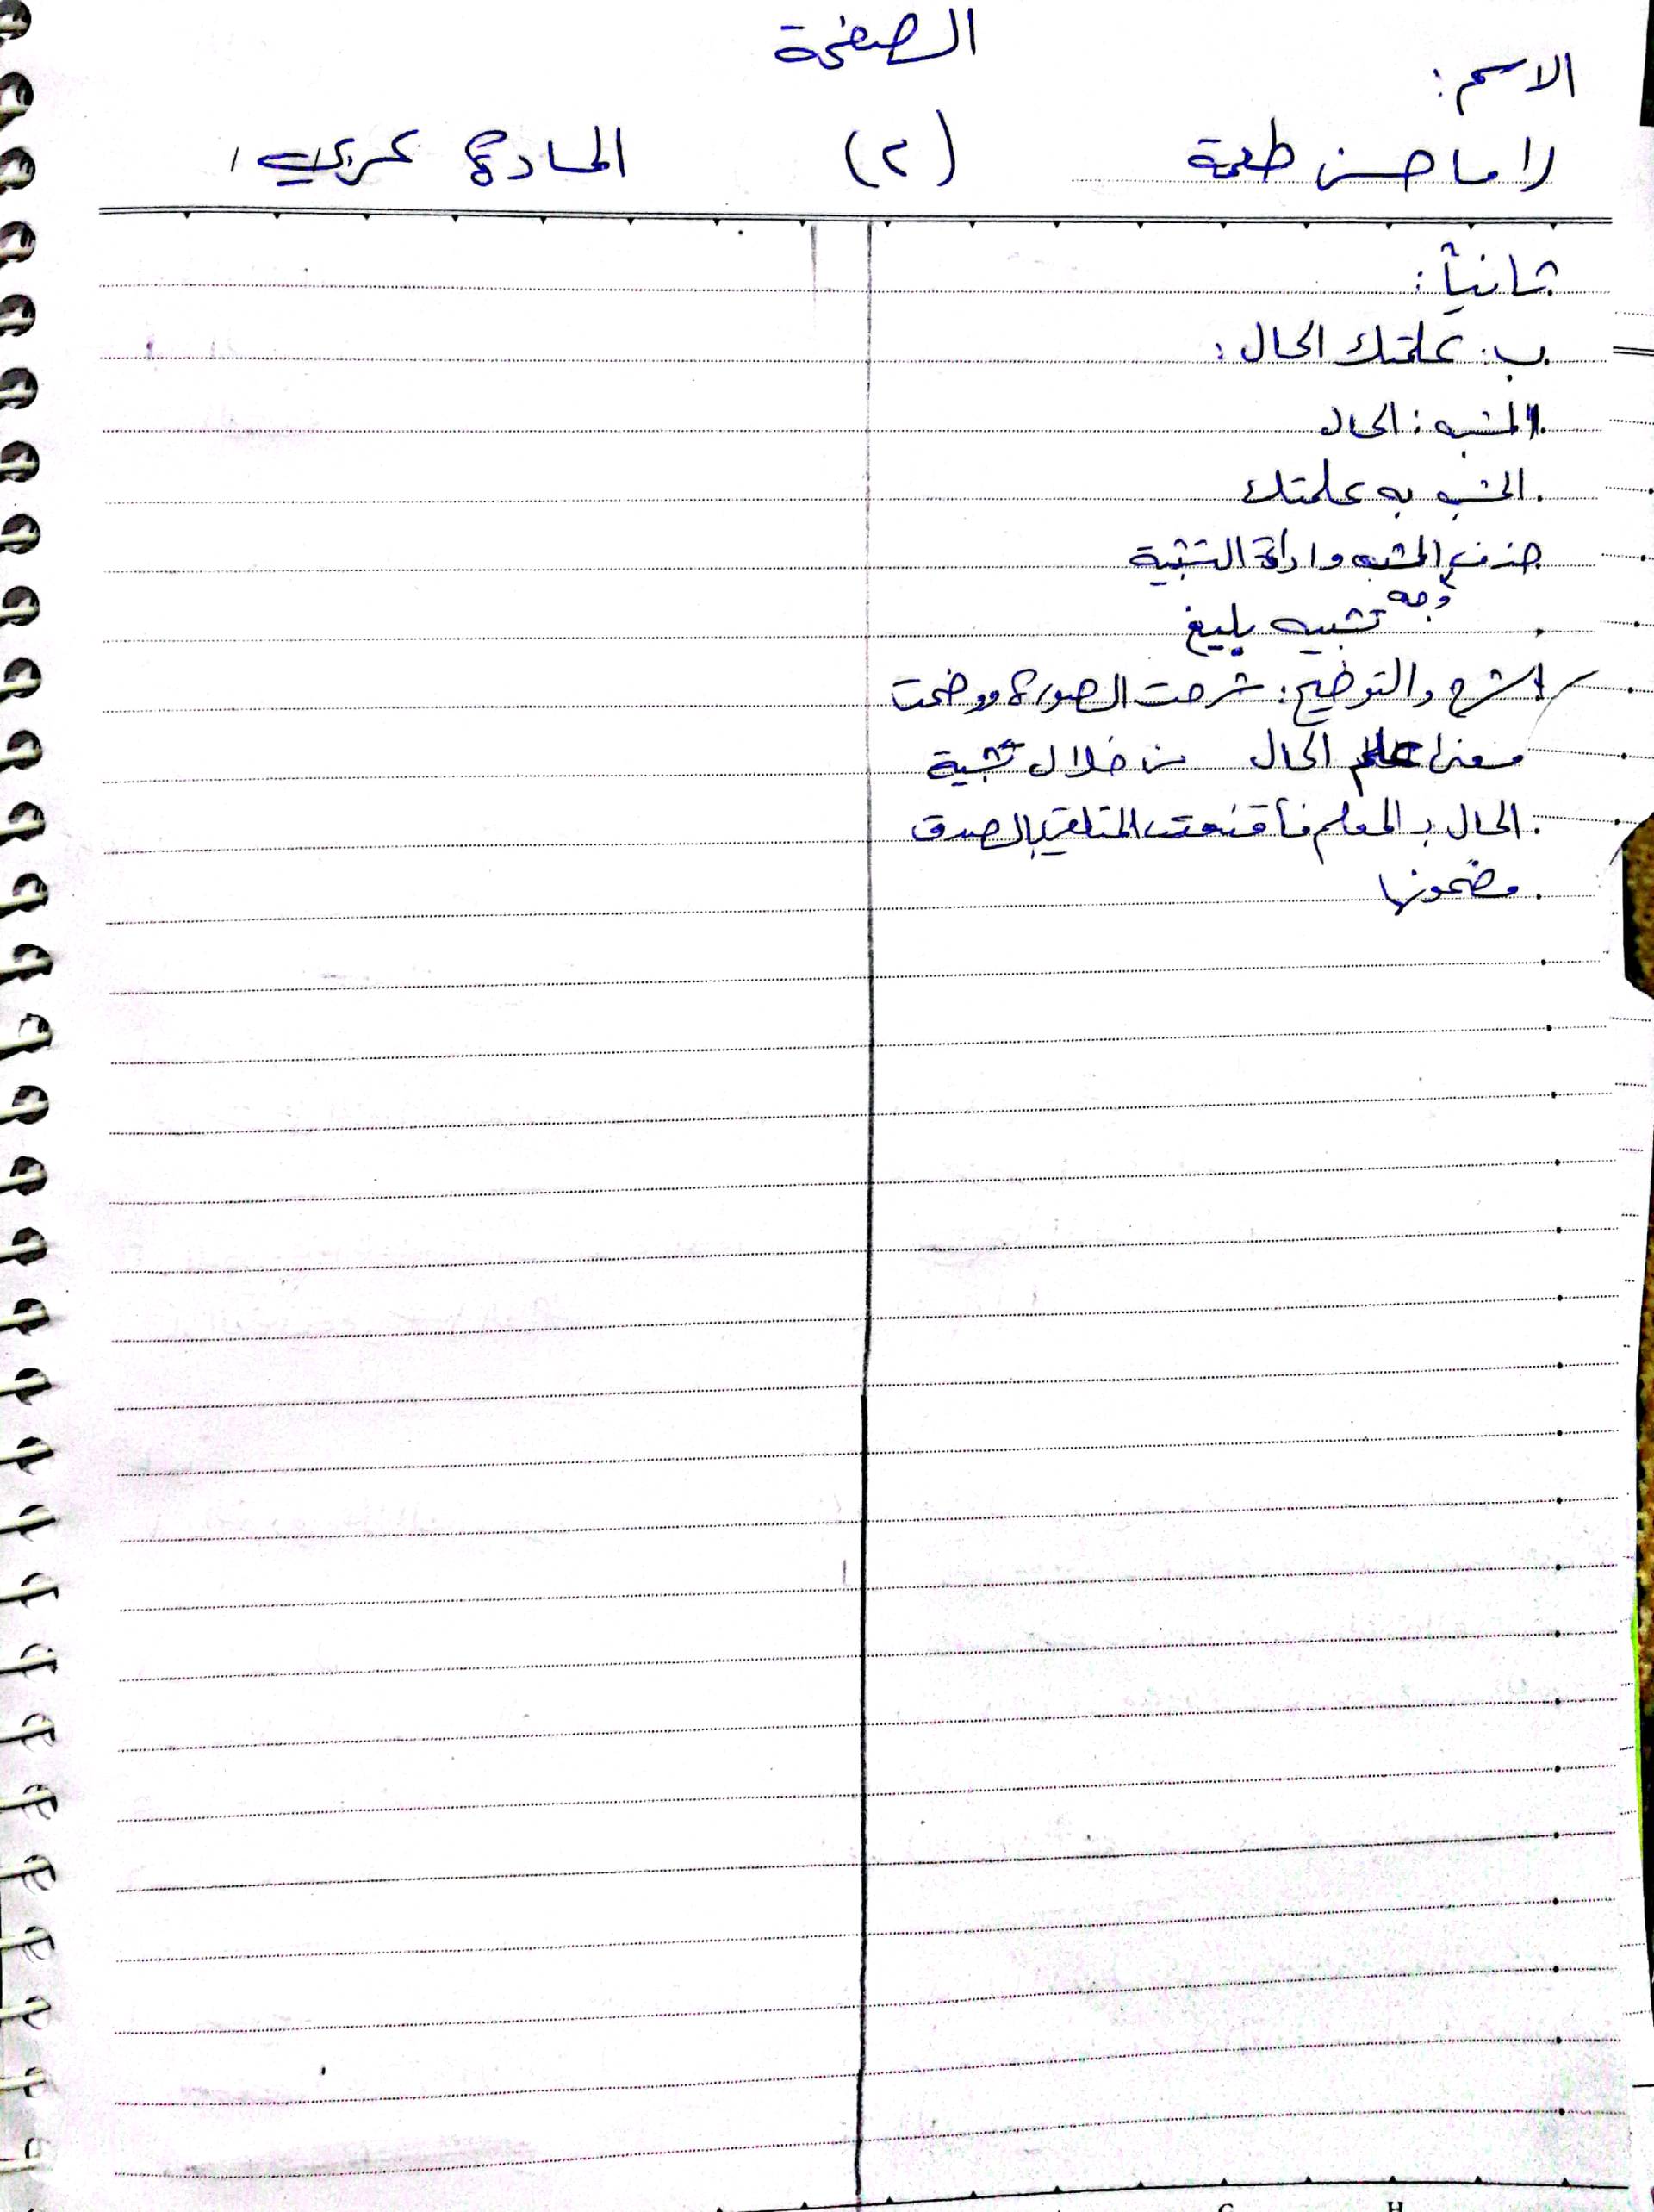 الصفحة
الاسم:
راما حسن طعمة (٢) المادة عربي
ثانياً:
ب. علمتك الحال:
المشبه: الحال
المشبه به علمتك
حذف المشبه واداة التشبية
وجه
تشبيه بليغ
الشرح والتوضيح: شرحت الصورة ووضحت
معنى علم الحال من خلال تشبية
الحال بـ المعلم فأقنعت المتلقي بالصدق
مضمونها